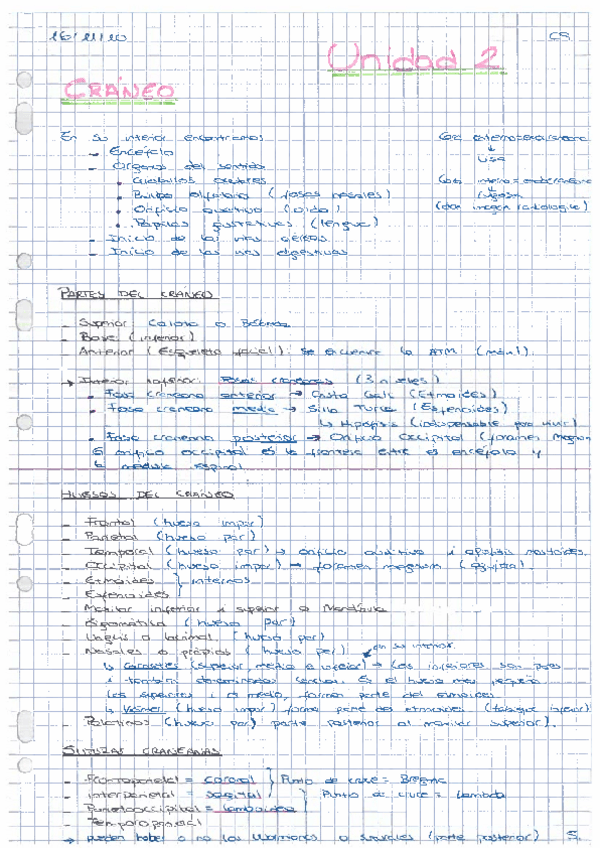 16/11/20 CS
Unidad 2
CRÁNEO
En su interior encontramos
- Encéfalo
- Órganos del sentido
• Globulos oculares
• Bulbo olfatorio (fosas nasales)
• Orificio auditivo (oido)
• Papilas gustativas (lengua)
- Inicio de las vias aéreas
- Inicio de las vias digestivas
Lisa
(dan imagen radiologica)
PARTES DEL CRANEO
- Superior Calota o Bóveda
- Base (inferior)
- Anterior (Esqueleto facial): Se encuentra la ATM (móvil).
→ Interior inferior: Fosas craneanas (3 niveles)
• Fosa craneana anterior → Crista Galli (Etmoides)
• Fosa craneana media → Silla Turca (Esfenoides)
↳ Hipófisis (indispensable para vivir)
• Fosa craneana posterior → Orificio Occipital (foramen Magnum
El orificio occipital es la frontera entre el encéfalo y
la medula espinal.
HUESOS DEL CRANEO
- Frontal (hueso impar)
- Parietal (hueso par)
- Temporal (hueso par) → orificio auditivo i apofisis mastoides.
- Occipital (hueso impar) → foramen magnum
- Etmoides } internos
- Esfenoides
- Maxilar inferior i superior o Mandíbula
- Zigomático (hueso par)
- Unguis o lacrimal. (hueso par)
- Nasales o propios (hueso par): en su interior.
↳ Cornetes (superior, medio e inferior) → Los inferiores son pares
i tambien denominados conchas. Es el hueso mas pequeño
Los superiores i el medio, forman parte del etmoides.
↳ Vomer (hueso impar) forma parte del etmoides (tabique inferior)
- Palatinos (hueso par) parte posterior al maxilar superior).
SUTURAS CRANEANAS
- Frontoparietal = coronal } Punto de cruce = Bregma
- Interparietal = sagital } Punto de cruce = Lambda
- Parietooccipital = Lambdoidea
- Temporoparietal
→ pueden haber o no los wormianos o suturales (parte posterior) 5.